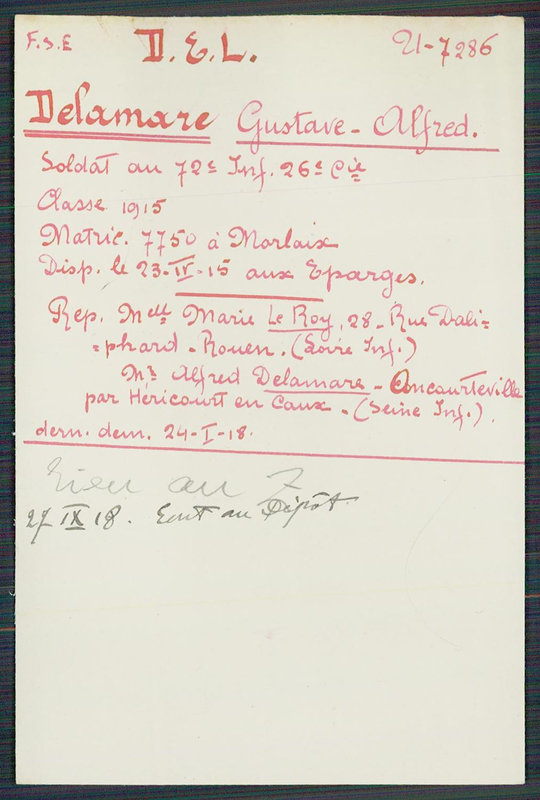 F.s.E D.E.L. U-7286
Delamare Gustave-Alfred.
Soldat au 72e Inf. 26e Cie
Classe 1915
Matric. 7750 à Morlaix
Disp. le 23-IV-15 aux Eparges.
Rep. Melle Marie Le Roy, 28-Rue Dali=
=phard-Rouen. (Loire Inf.)
Mr Alfred Delamare-Ancourteville
par Héricourt en Caux-(Seine Inf.).
dern. dem. 24-I-18.
rien au 7
27 IX 18. Ecrit au Dépôt